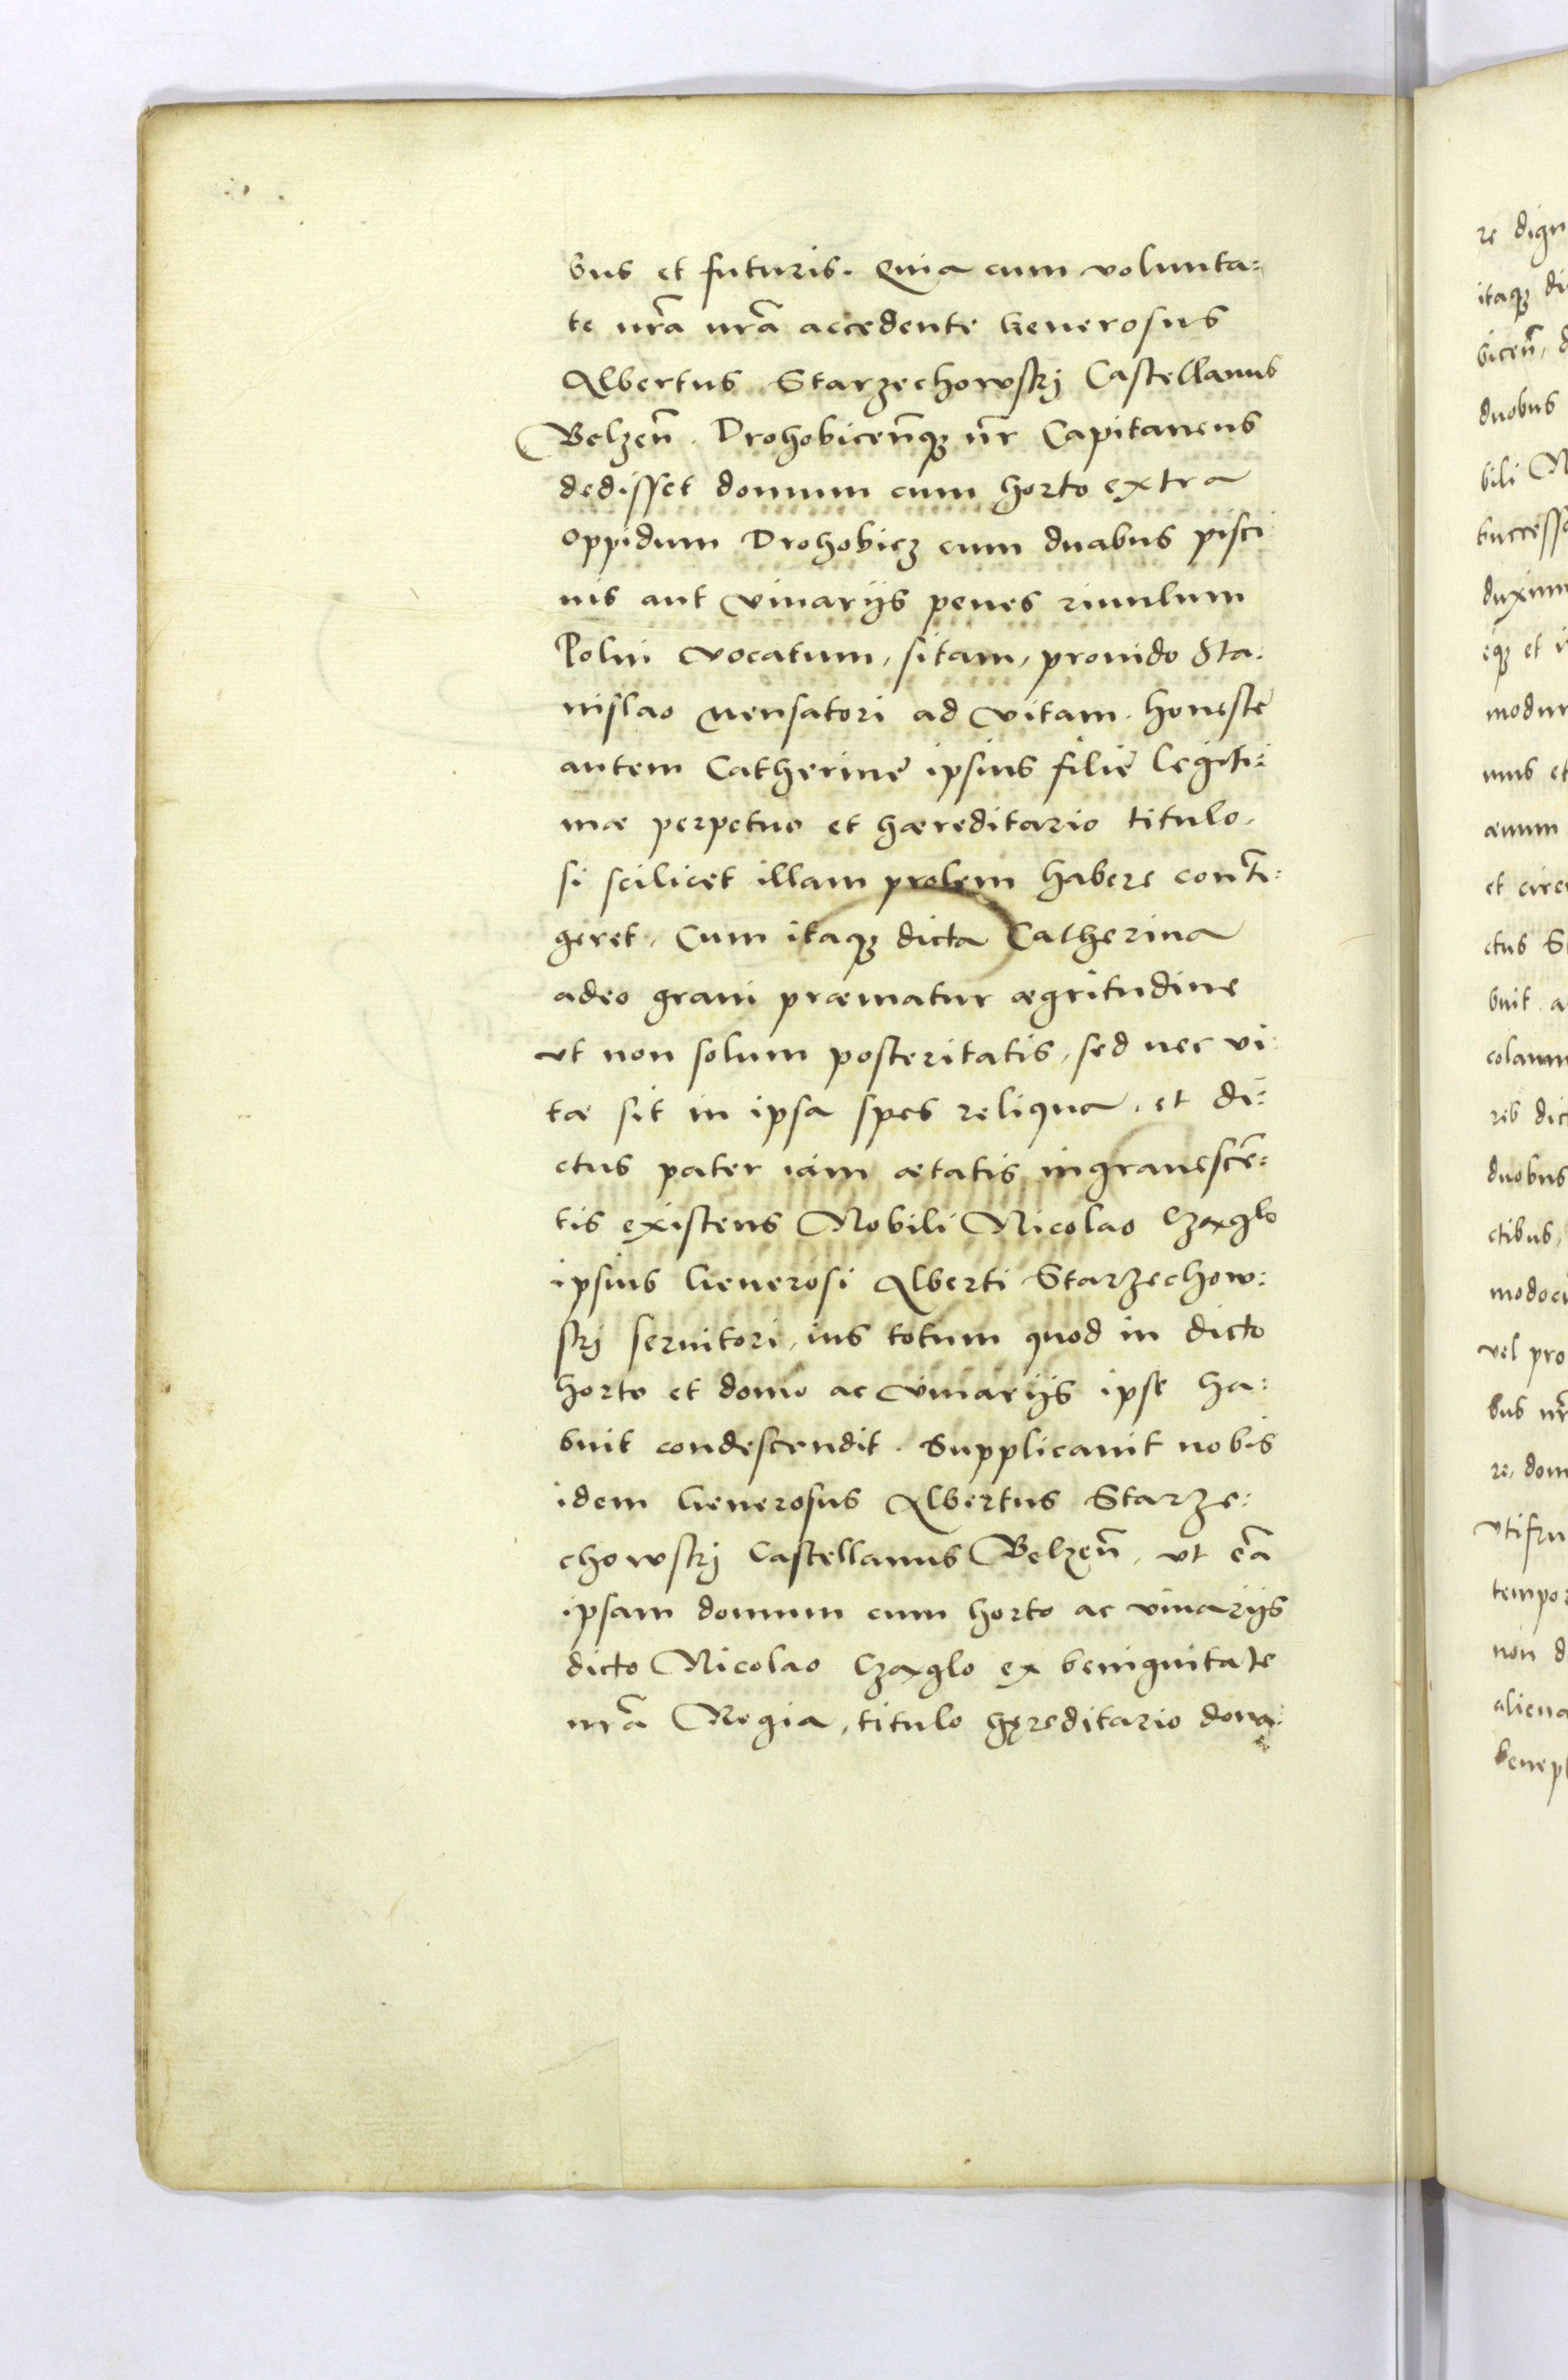 bus et futuris. Quia cum volunta:
te nr̃a nr̃a accedente Generosus
Albertus Starzechowskj Castellanus
Belzen̄. Drohobicen̄qꝫ nr̄ Capitaneus
dedisset domum cum horto extra
oppidum Drohobicz cum duabus pisci
nis aut vivarijs penes riuulum
Polni vocatum, sitam, prouido Sta:
nislao mensatori ad vitam. honestę
autem Catherinę ipsius filię legiti:
mæ perpetuo et hæreditario titulo,
si scilicet illam prolem habere conti:
geret. Cum itaqꝫ dicta Catherina
adeo graui præmatur ægritudine
vt non solum posteritatis, sed nec vi:
tæ sit in ipsa spes reliqua, et di:
ctus pater iam ætatis ingrauescē:
tis existens Nobili Nicolao Czaxlo
ipsius Generosi Alberti Starzechow:
skj seruitori, ius totum quod in dicto
horto et domo ac viuarijs ipse ha:
buit condescendit. Supplicauit nobis
idem Generosus Albertus Starze:
chowskj Castellanus Belzen̄, vt eā
ipsam domum cum horto ac viuarijs
dicto Nicolao Czaxlo ex benignitate
nr̃a Regia, titulo hęreditario dona:
re
itaqꝫ
bicen̄,
duobus
bili
eqꝫ et
et
et
duobus
ctibus,
vel pro
bus
re, dom
non